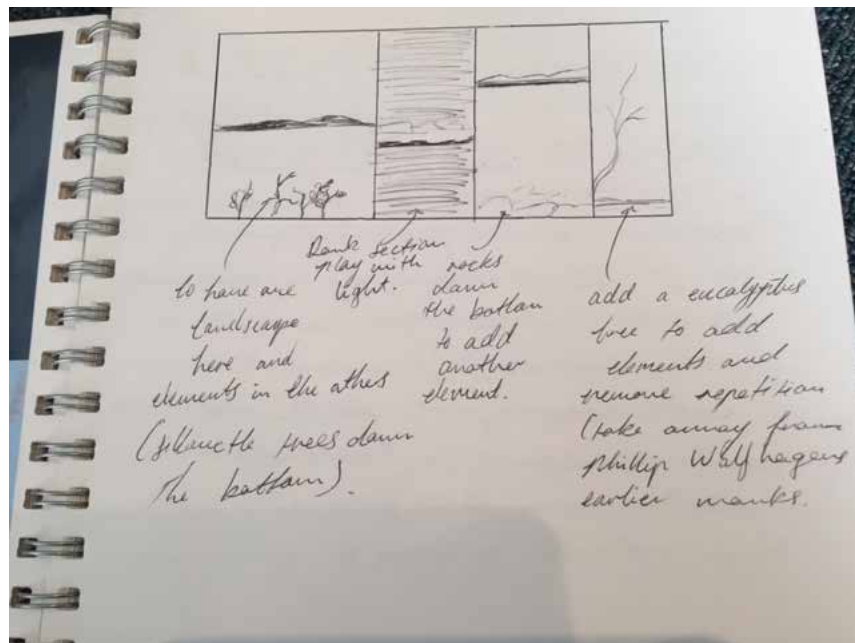 to have one
landscape
here and
elements in the others
(sillouette trees down
the bottom).
Dark section
play with
light.
rocks
down
the bottom
to add
another
element.
add a eucalyptus
tree to add
elements and
remove repetition
(take away from
Phillip Wolfhagens
earlier works.